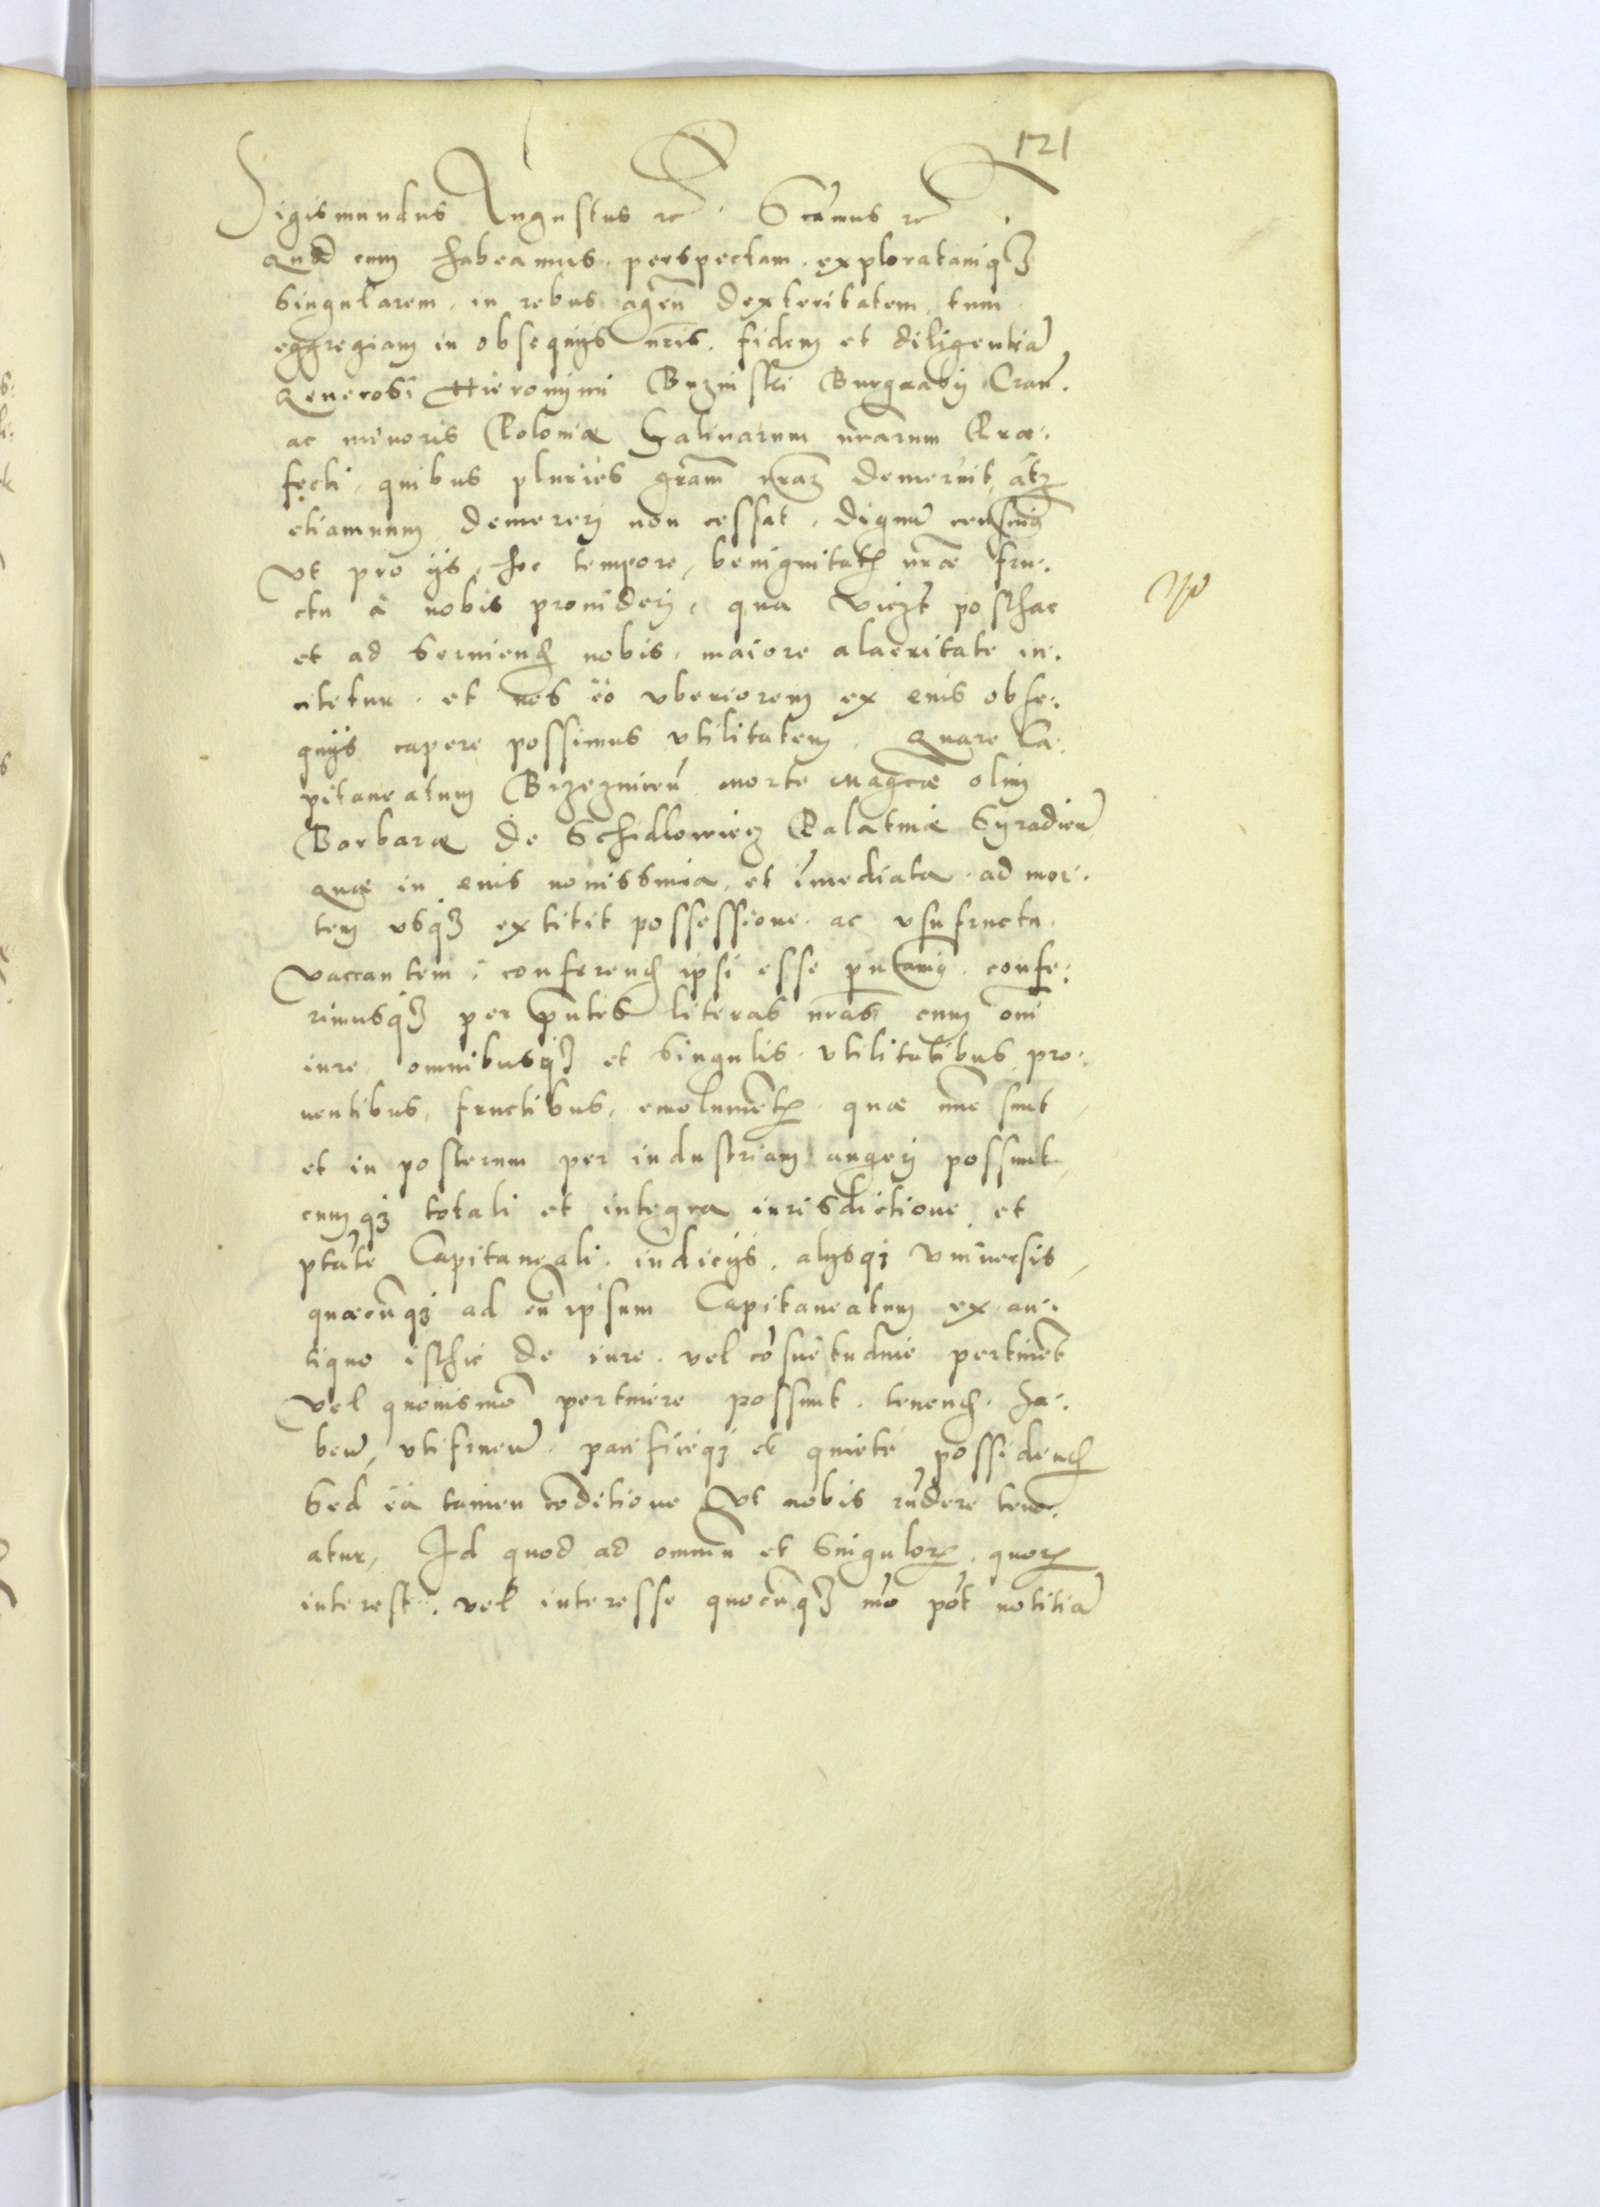 121
Sigismundus Augustus etc. Scimus etc.
Quod cum habeamus perspectam exploratamq3
singularem in rebus agen̄ dexteritatem tum
eggregiam in obsequys nr̄is fidem et diligentiā
Generosi Hieronymi Buzinski Burgrabij Crac̄.
ac minoris Poloniæ Salinarum nr̄arum Præ-
fecti, quibus pluries grām nr̄am demeruit, atq3
etiamnum demererj non cessat, dignū censuim9
Vt pro ijs, hoc tempore, benignitatis nr̄æ fru-
ctu à nobis prouiderj, qua vic3t posthac
et ad seruiend nobis, maiore alacritate in-
citetur, et nos eò vberiorem ex eius obse-
quijs capere possimus vtilitatem. Quare Ca-
pitaneatum Brzeznicen̄ morte Maḡcæ olim
Barbaræ de Schidlowiecz Palatinæ Syradien̄
quæ in eius nouissima, et im̄ediata ad mor-
tem vsq3 extitit possessione ac vsufructu
vaccantem conferend ipsi esse putauim9 confe-
rimusq3 per pn̄tes literas nr̄as cum om̄i
iure omnibusq3 et singulis vtilitatibus, pro-
uentibus, fructibus, emolumētis quæ nūc sunt
et in posterum per industriam augerj possunt
cumq3 totali et integra iurisdictione et
ptāte Capitaneali, iudicijs, alysq3 vniuersis,
quæcūq3 ad eū ipsum Capitaneatum ex an-
tiquo isthic de iure vel cōsuetudine pertinēt
vel quouismo pertinere possunt, tenend, ha-
ben̄, vtifruen̄, pacificeq3 et quietè possidend
Sed eà tamen cōditione Vt nobis rn̄dere tene-
atur, Id quod ad omniū et singulor, quor
interest, vel interesse quocūq3 mō pōt notitiā